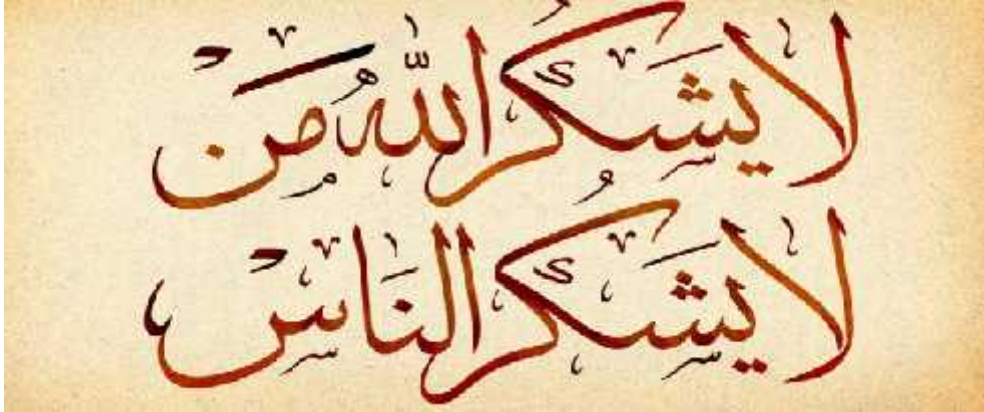 لا يشكر الله من
لا يشكر الناس